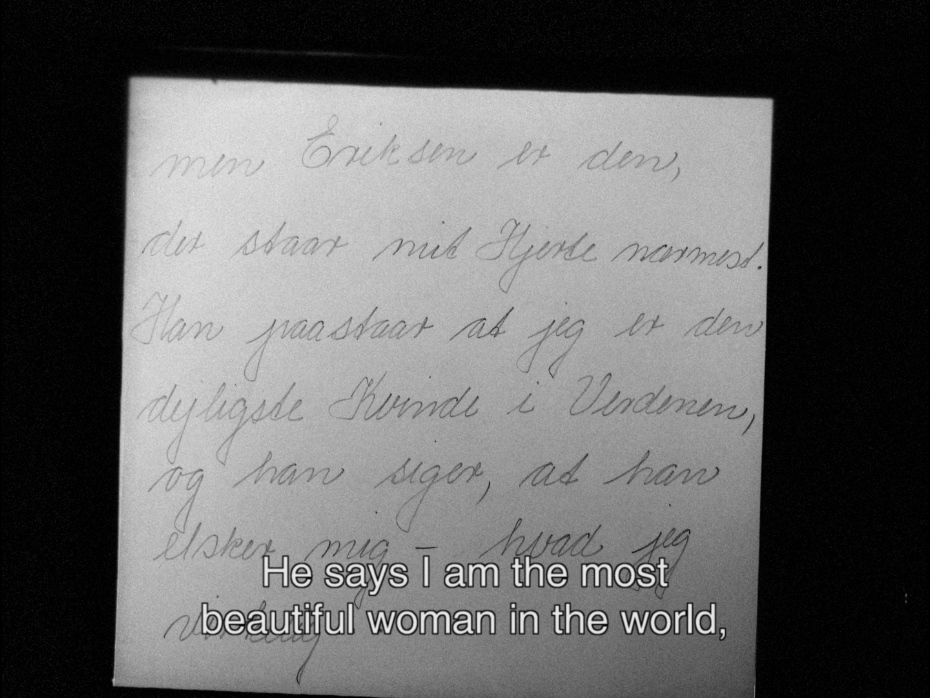 men Eriksen er den,
der staar mit Hjerte nærmest.
Han paastaar at jeg er den
dejligste Kvinde i Verdenen,
og han siger, at han
elsker mig – hvad jeg
He says I am the most
beautiful woman in the world,